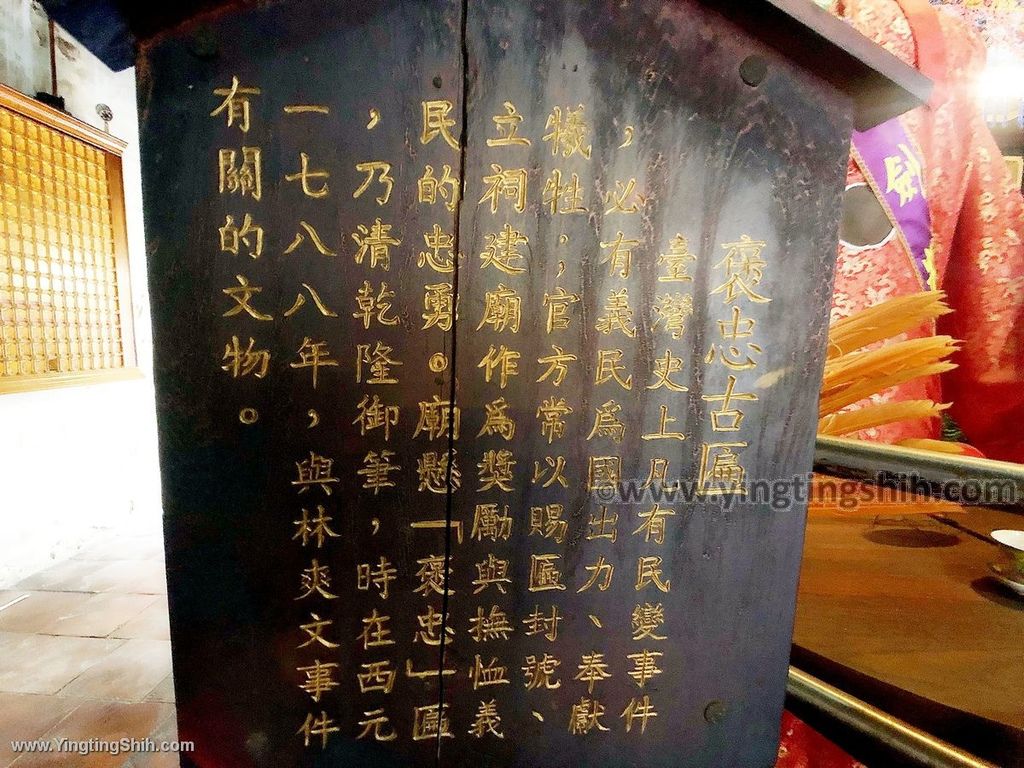 褒忠古匾
臺灣史上凡有民變事件
，必有義民為國出力、奉獻
犧牲，官方常以賜匾封號、
立祠建廟作為獎勵與撫恤義
民的忠勇。廟懸「褒忠」匾
，乃清乾隆御筆，時在西元
一七八八年，與林爽文事件
有關的文物。
©www.YingtingShih.com
www.YingtingShih.com